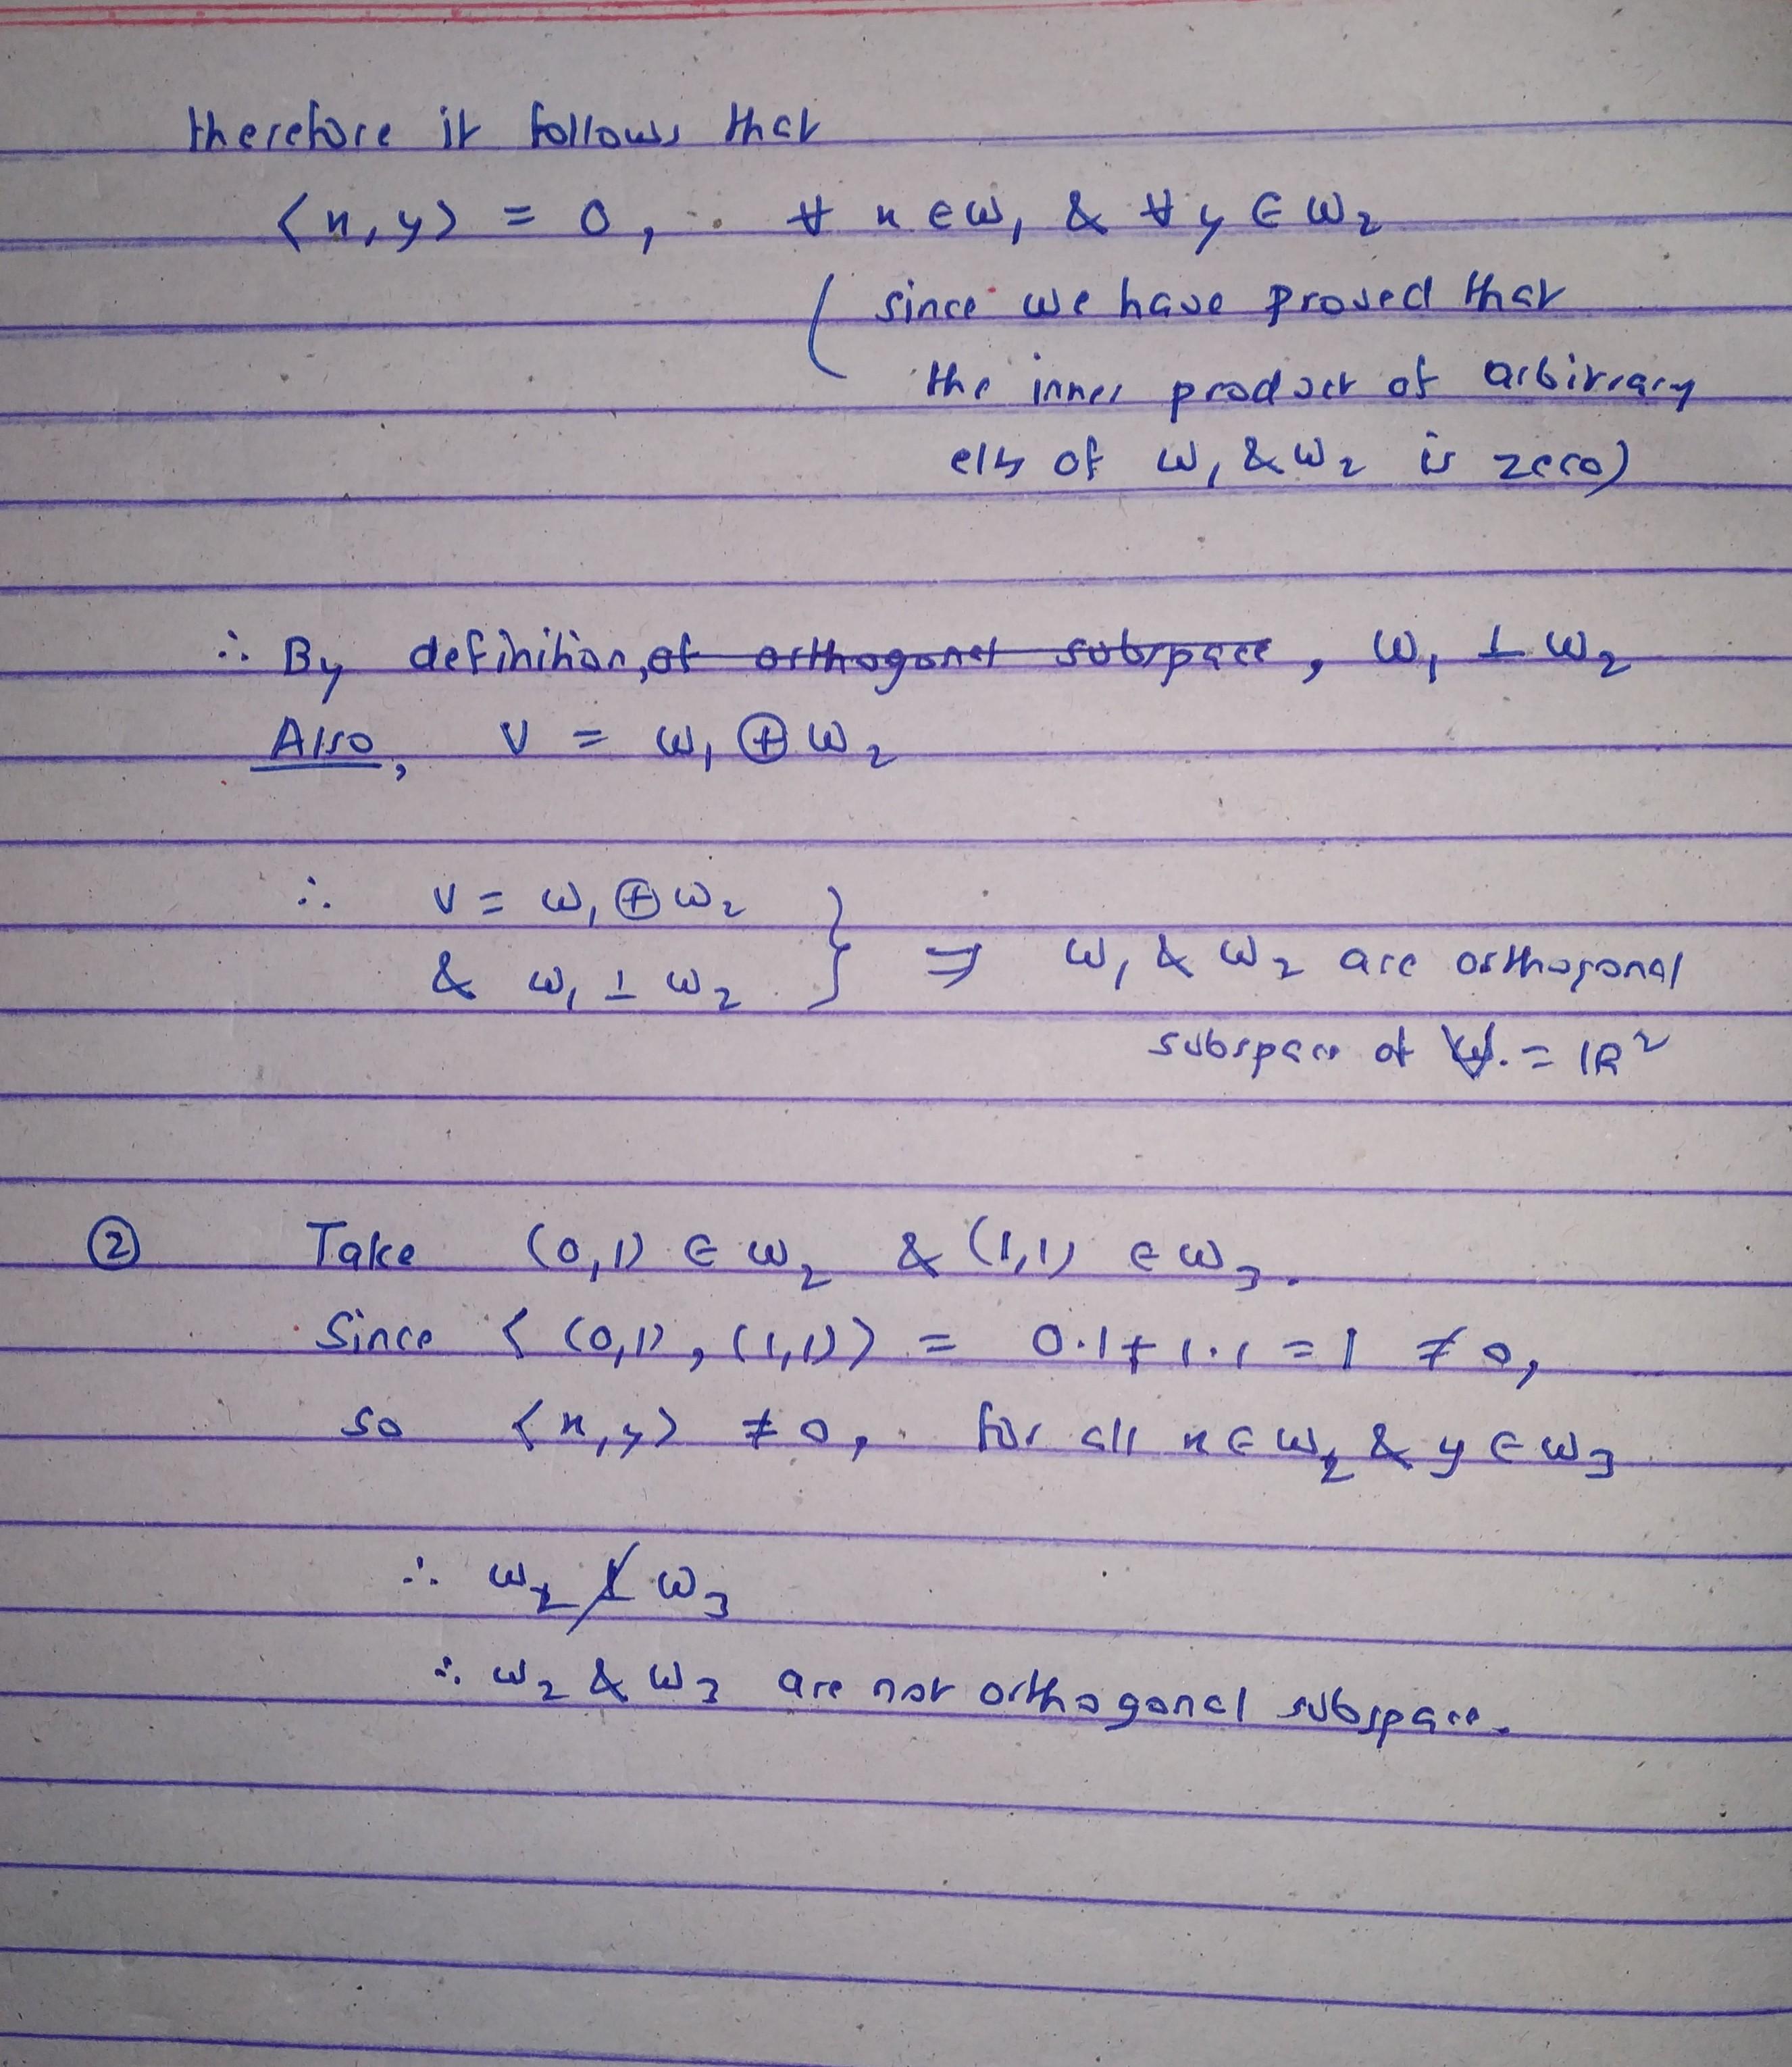 therefore it follows that
⟨x, y⟩ = 0, ∀ x ∈ W₁ & ∀ y ∈ W₂
(since we have proved that
the inner product of arbitrary
elts of W₁ & W₂ is zero)
∴ By definition, of orthogonal subspace, W₁ ⊥ W₂
Also, V = W₁ ⊕ W₂
∴ V = W₁ ⊕ W₂
& W₁ ⊥ W₂ } ⇒ W₁ & W₂ are orthogonal
subspace of V = ℝ²
② Take (0,1) ∈ W₂ & (1,1) ∈ W₃.
Since ⟨(0,1), (1,1)⟩ = 0·1 + 1·1 = 1 ≠ 0,
so ⟨x, y⟩ ≠ 0, for all x ∈ W₂ & y ∈ W₃
∴ W₂ ⊥̸ W₃
∴ W₂ & W₃ are not orthogonal subspace.